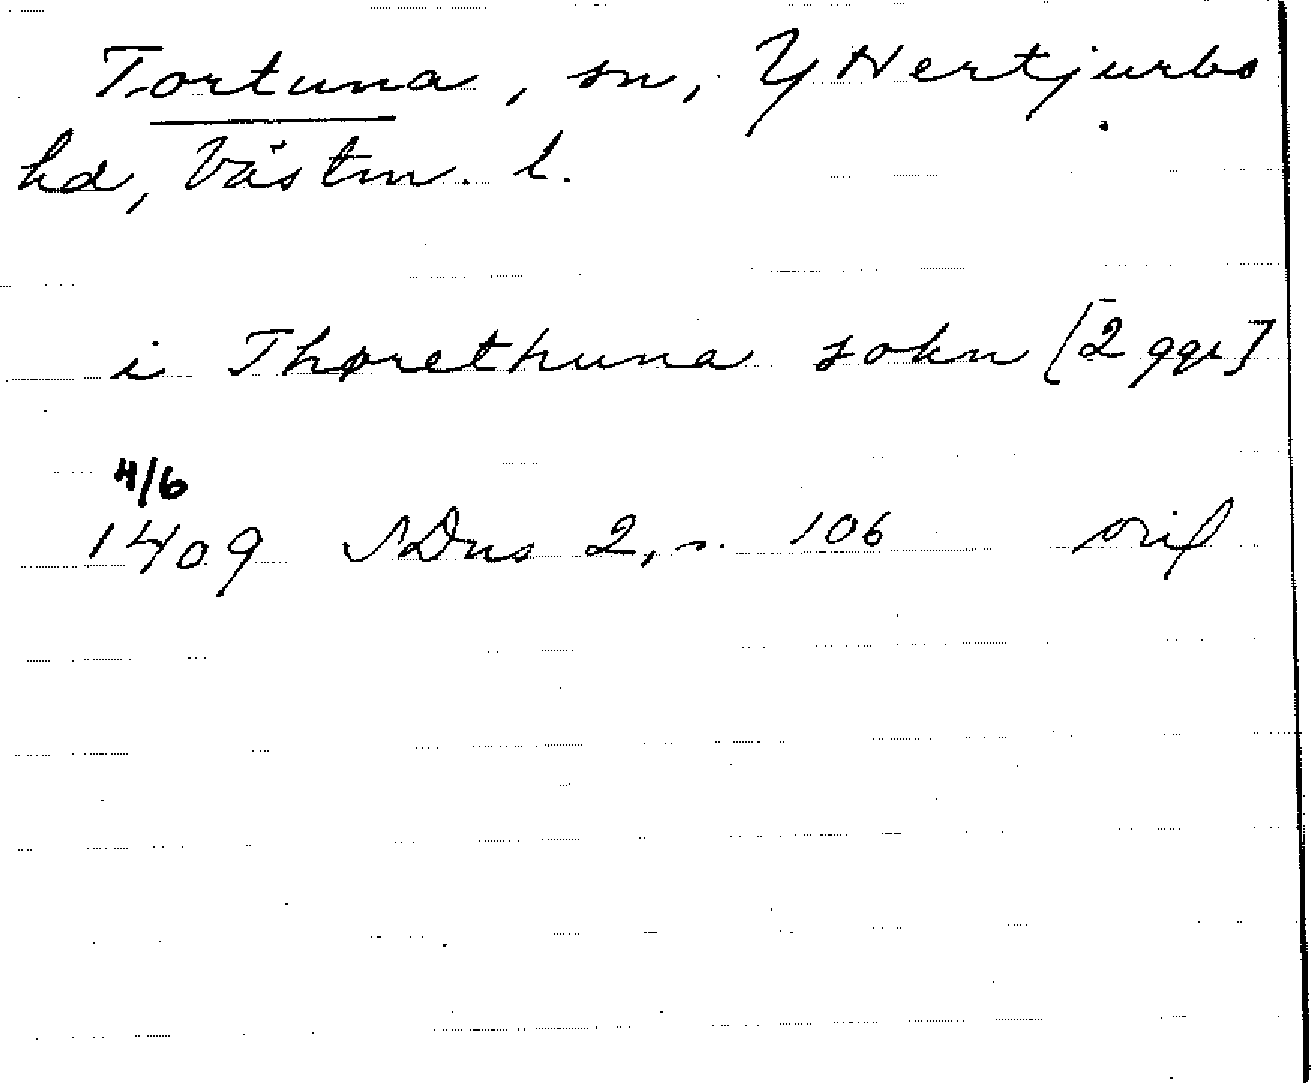 Tortuna, sn, Y Hertjurbo
hd, Västm. l.
i Thørethuna sokn [2 ggr]
4/6
1409 SDns 2, s. 106 orig